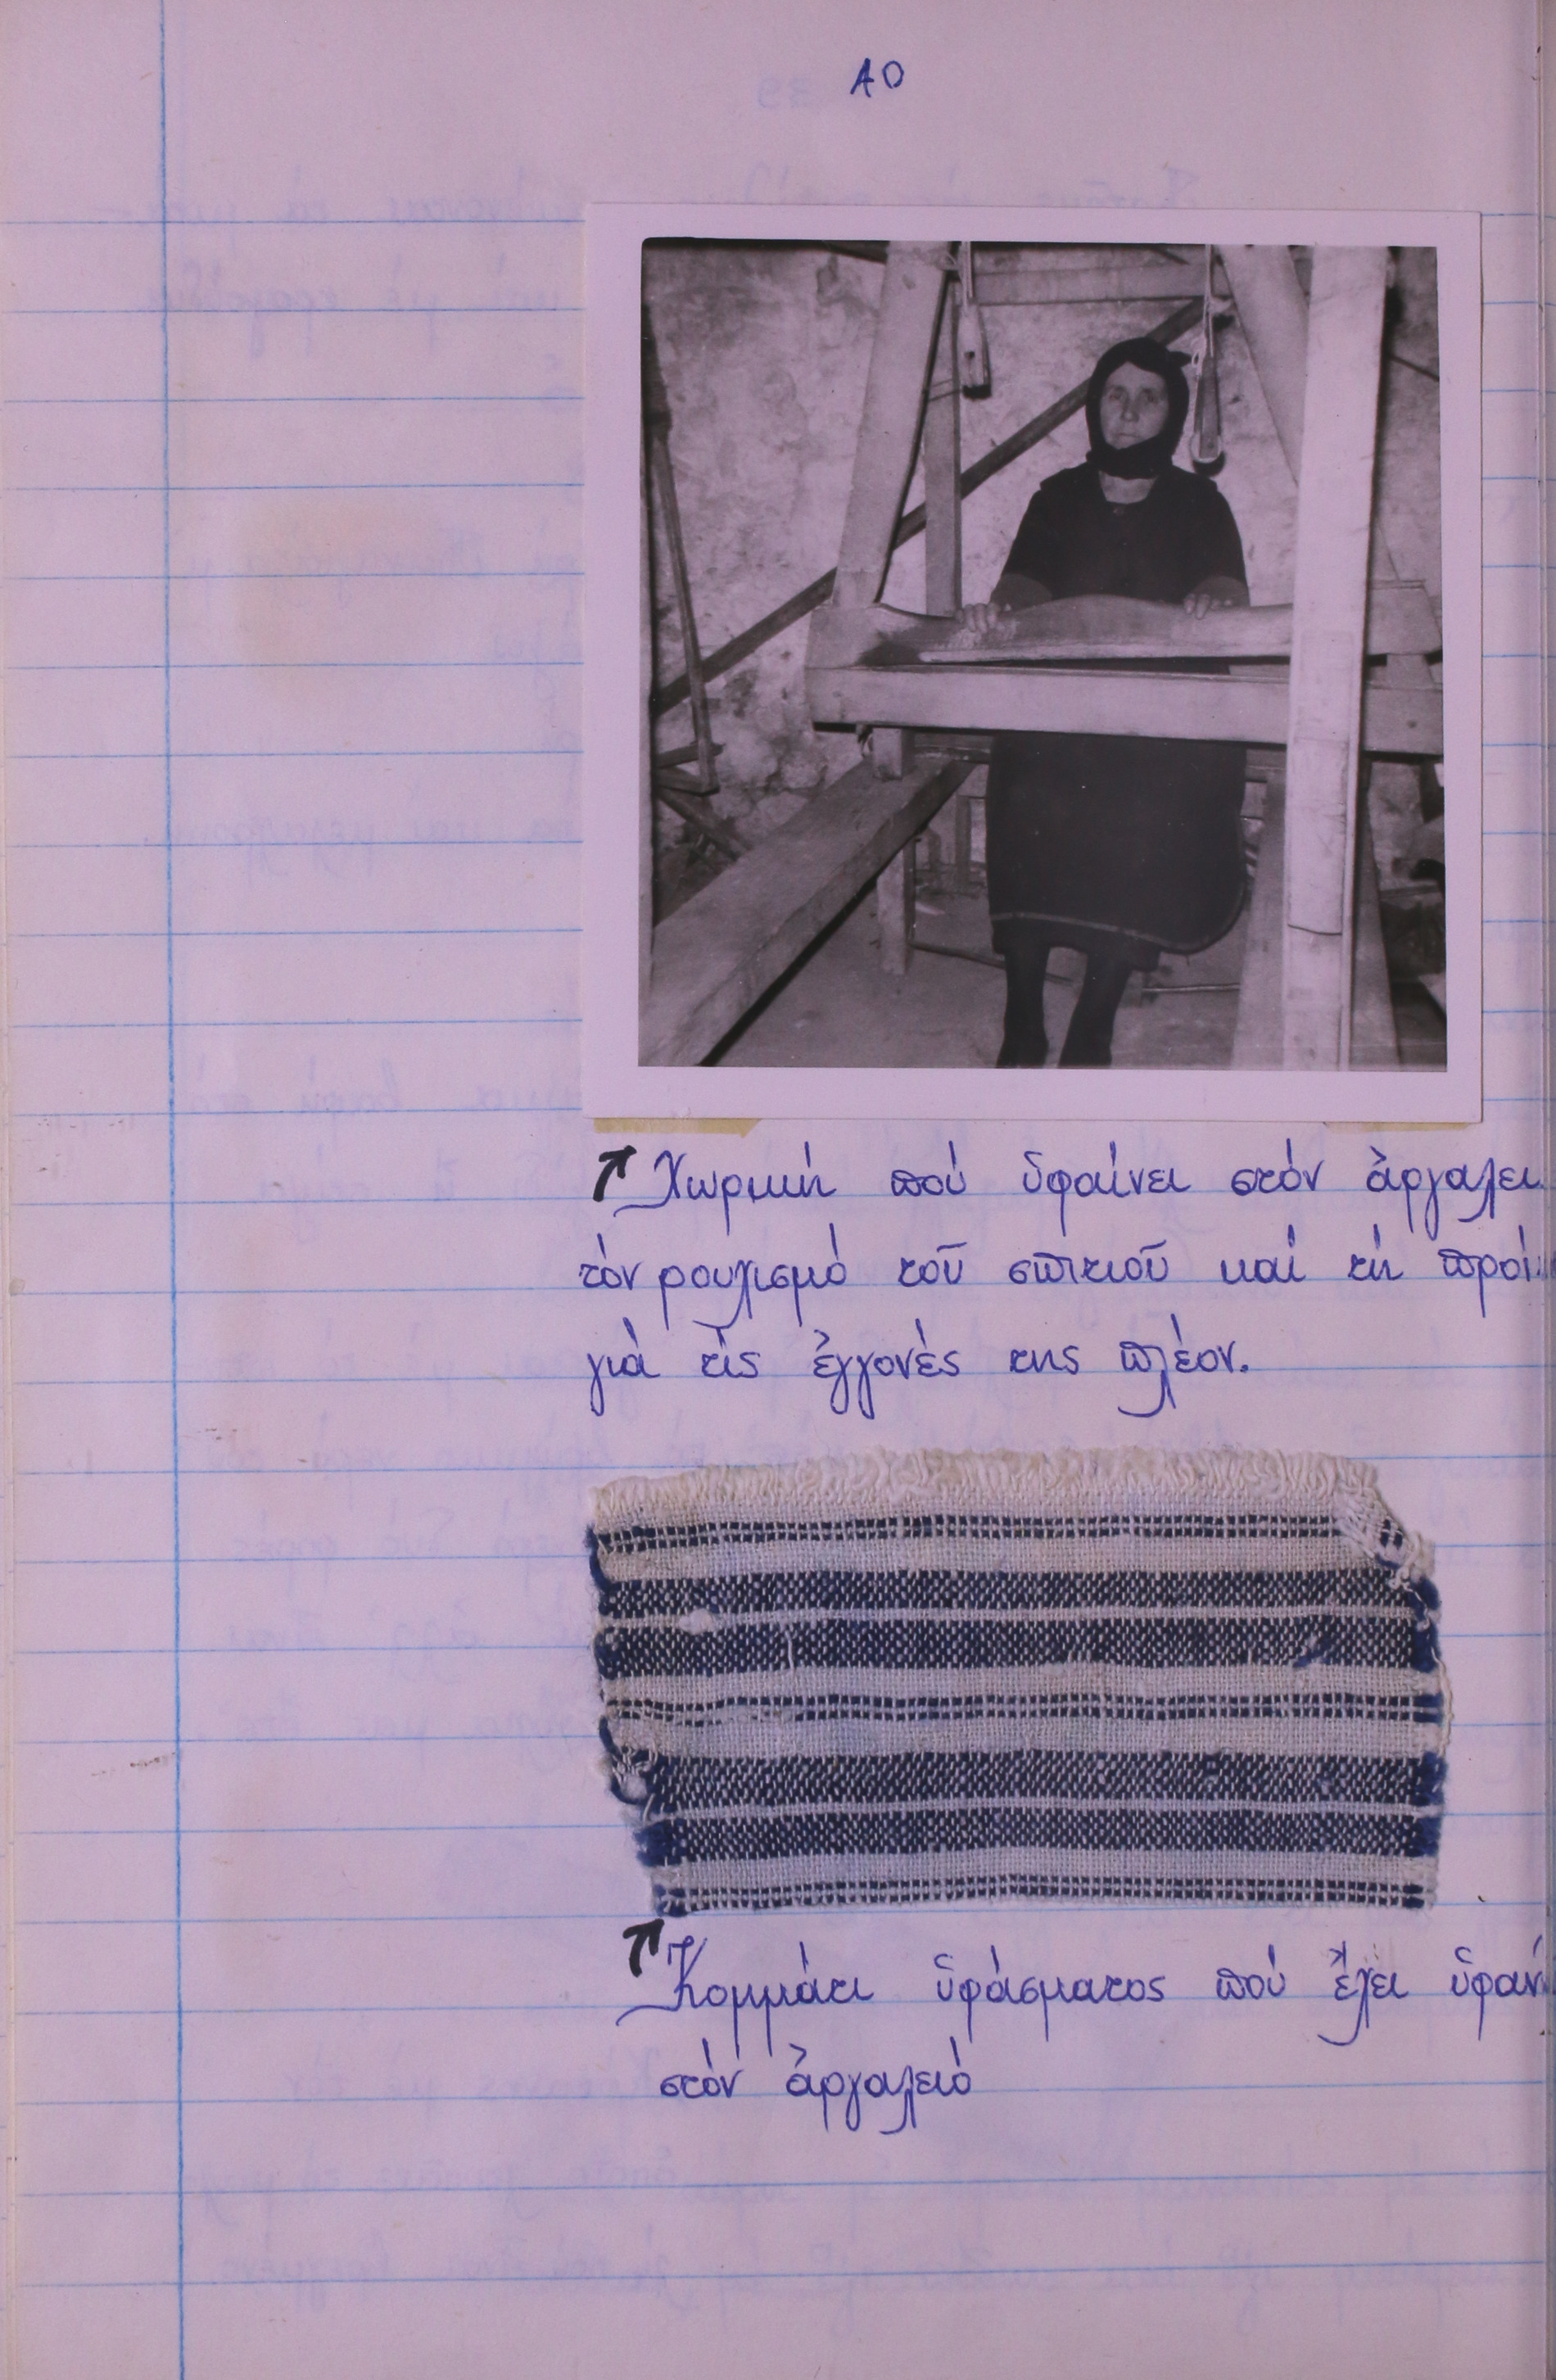 40
Χωρική πού ὑφαίνει στόν ἀργαλει
τόν ρουχισμό τοῦ σπιτιοῦ καί τή προί
γιά τίς ἐγγονές της πλέον.
Κομμάτι ὑφάσματος πού ἔχει ὑφαν
στόν ἀργαλειό